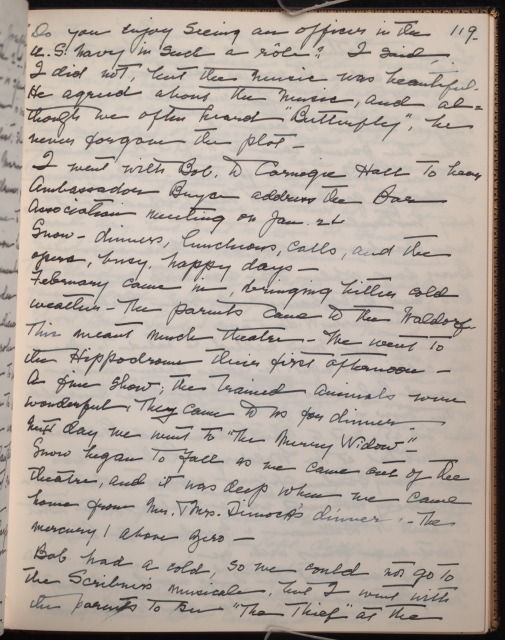 119.
"Do you enjoy seeing an officer in the
U.S. Navy in such a rôle?" I said,
I did not, but the music was beautiful.
He agreed about the music, and al=
though we often heard "Butterfly", he
never forgave the plot —
I went with Bob. to Carnegie Hall to hear
Ambassador Bryce address the Bar
Association meeting on Jan. 24
Snow - dinners, luncheons, calls, and the
opera, busy, happy days —
February came in, bringing bitter cold
weather - The parents came to the Waldorf
This meant much theatre - We went to
the Hippodrome their first afternoon -
A fine show; the trained animals were
wonderful. They came to us for dinner -
Next day we went to "The Merry Widow" -
Snow began to fall as we came out of the
theatre, and it was deep when we came
home from Mr. & Mrs. Dimock's dinner - The
mercury 1 above zero —
Bob had a cold, so we could not go to
the Scribner's musicale, but I went with
the parents to see "The Thief" at the